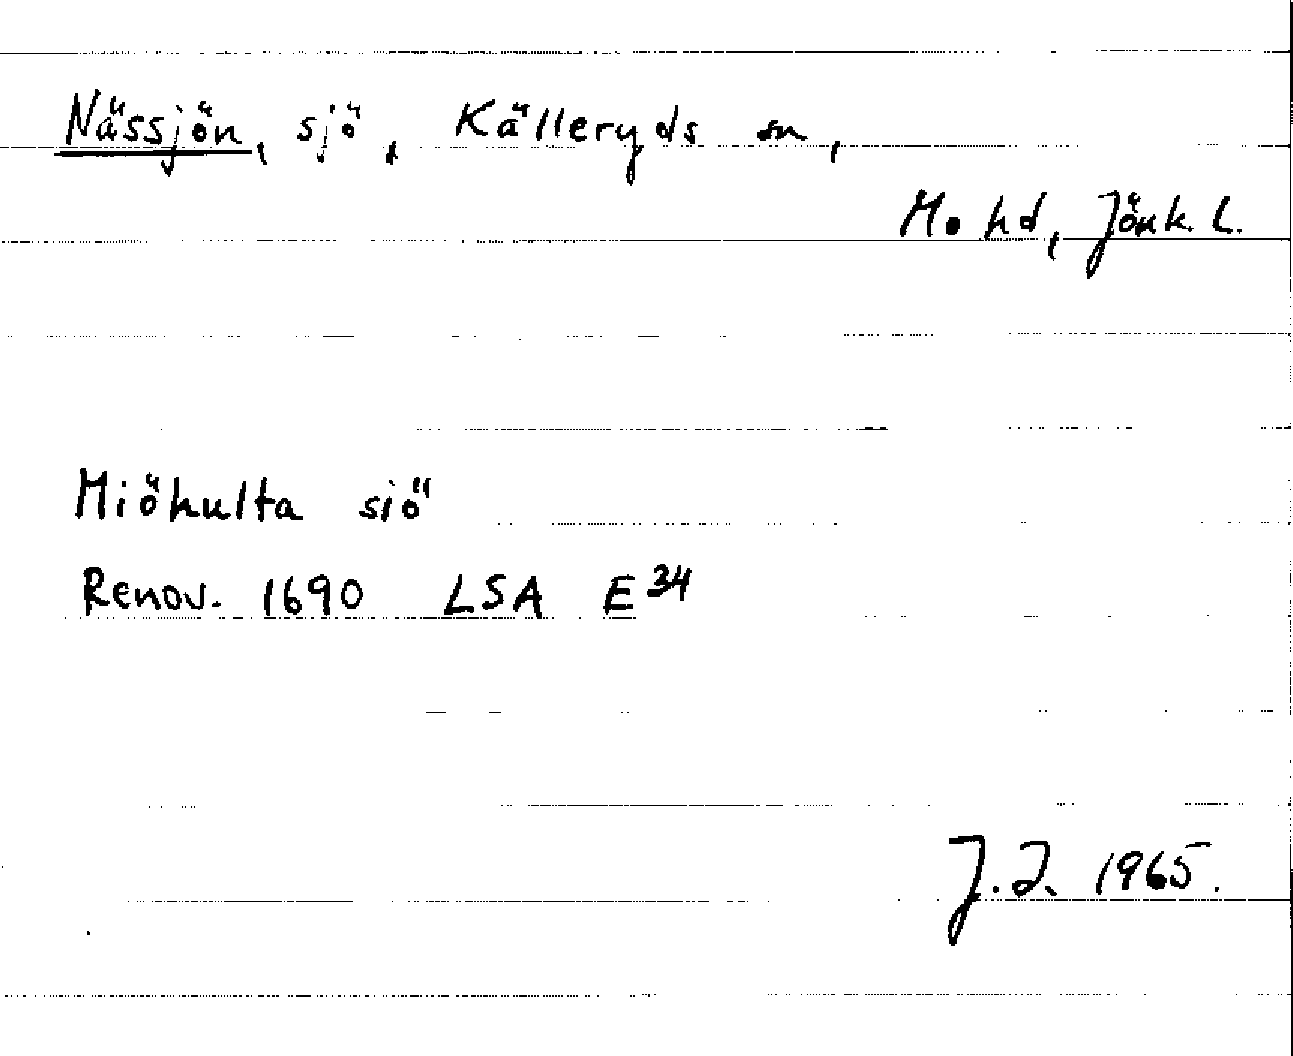 Nässjön, sjö, Källeryds sn,
Mo hd, Jönk. L.
Miöhulta siö
Renov. 1690 LSA E34
J.I. 1965.